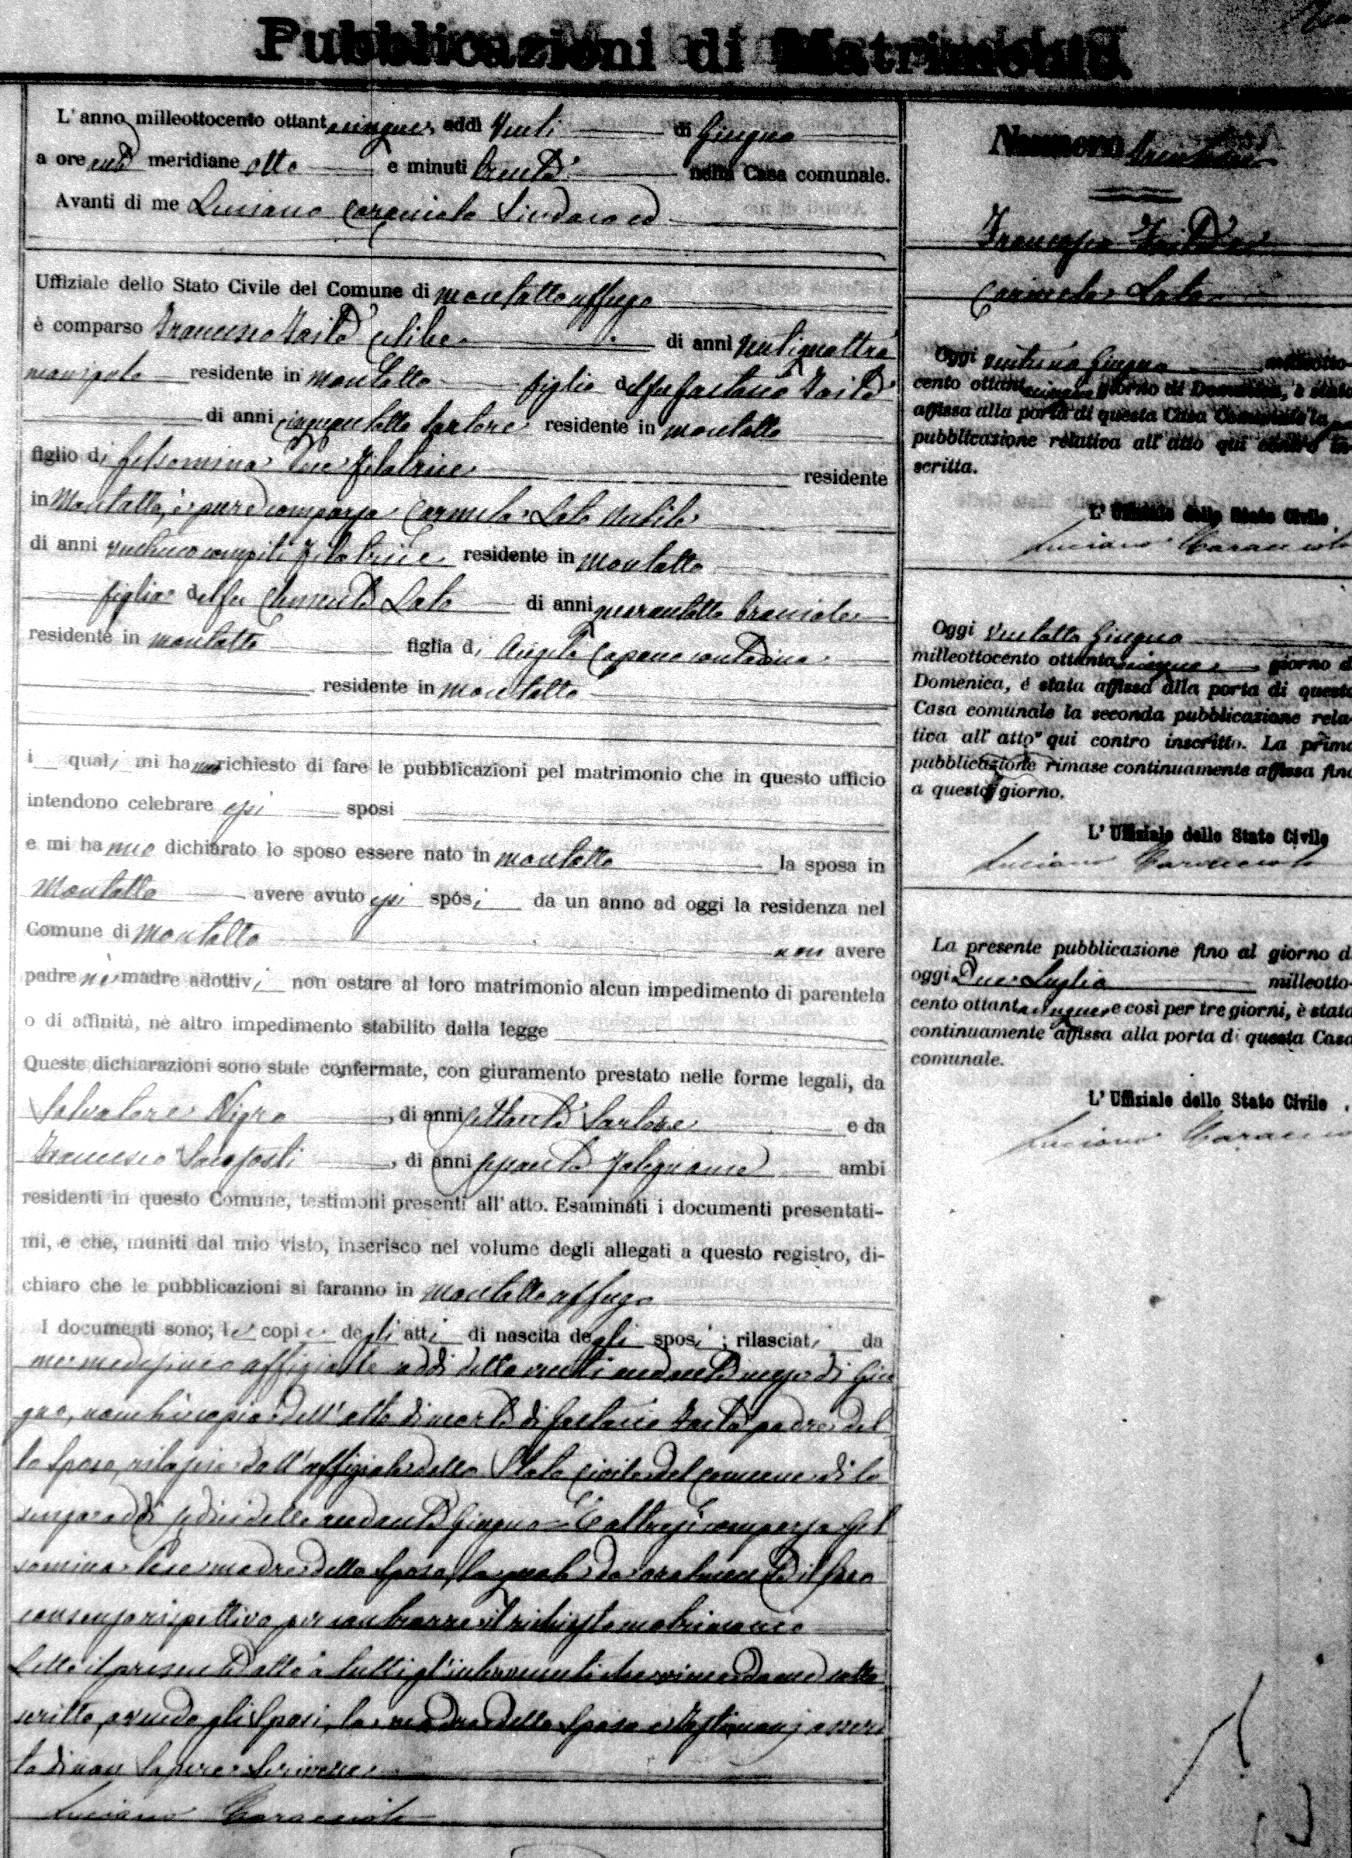 Pubblicazioni di Matrimonio.
L' anno milleottocento ottantacinque addi Venti di Giugno
a ore anti meridiane otto e minuti trenta nella Casa comunale.
Avanti di me Luciano Caracciolo Sindaco ed
Uffiziale dello Stato Civile del Comune di Montalto uffugo
è comparso Francesco Zaità celibe di anni ventiquattro
residente in Montalto figlio del fu Gaetano Zaità
di anni cinquantotto sartore residente in Montalto
figlio di Gelsomina filatrice residente
in Montalto, è pure comparsa Carmela Lato nubile
di anni compiti filatrice residente in Montalto
figlia del fu Clemente Lato di anni quarantotto bracciale
residente in Montalto figlia di Angela Capano contadina
residente in Montalto
i quali mi hanno richiesto di fare le pubblicazioni pel matrimonio che in questo ufficio
intendono celebrare essi sposi
e mi hanno dichiarato lo sposo essere nato in Montalto la sposa in
Montalto avere avuto essi sposi da un anno ad oggi la residenza nel
Comune di Montalto non avere
padre nè madre adottivi non ostare al loro matrimonio alcun impedimento di parentela
o di affinità, nè altro impedimento stabilito dalla legge
Queste dichiarazioni sono state confermate, con giuramento prestato nelle forme legali, da
Salvatore Nigro, di anni settanta Sartore e da
Francesco, di anni sessanta falegname ambi
residenti in questo Comune, testimoni presenti all' atto. Esaminati i documenti presentati-
mi, e che, muniti dal mio visto, inserisco nel volume degli allegati a questo registro, di-
chiaro che le pubblicazioni si faranno in Montalto uffugo
I documenti sono; le copie degli atti di nascita degli sposi; rilasciati da
me medesimo uffiziale addi delli venti andante mese di Giu
gno, nonchè copia dell' atto di morte di Gaetano Zaità padre del
lo sposo, rilasciata dall' uffiziale dello Stato civile del comune di
addi sedici dello andante Giugno = È altresì comparsa Gel
somina madre dello sposo, la quale da oralmente il suo
consenso rispettivo per contrarre il richiesto matrimonio
Letto il presente atto a tutti gl' intervenuti che viene da me sotto
scritto, avendo gli sposi, la madre dello sposo e testimonj asseri
to di non sapere scrivere
Luciano Caracciolo
Numero
Francesco Zaità ed
Carmela Lato
Oggi ventuno Giugno milleotto-
cento ottantacinque giorno di Domenica, è stata
affissa alla porta di questa Casa Comunale la
pubblicazione relativa all' atto qui contro in-
scritta.
L' Uffiziale dello Stato Civile
Luciano Caracciolo
Oggi ventotto Giugno
milleottocento ottantacinque giorno di
Domenica, è stata affissa alla porta di questa
Casa comunale la seconda pubblicazione rela-
tiva all' atto qui contro inscritto. La prima
pubblicazione rimase continuamente affissa fino
a questo giorno.
L' Uffiziale dello Stato Civile
Luciano Caracciolo
La presente pubblicazione fino al giorno di
oggi Due Luglio milleotto-
cento ottantacinque e così per tre giorni, è stata
continuamente affissa alla porta di questa Casa
comunale.
L' Uffiziale dello Stato Civile
Luciano Caracciolo